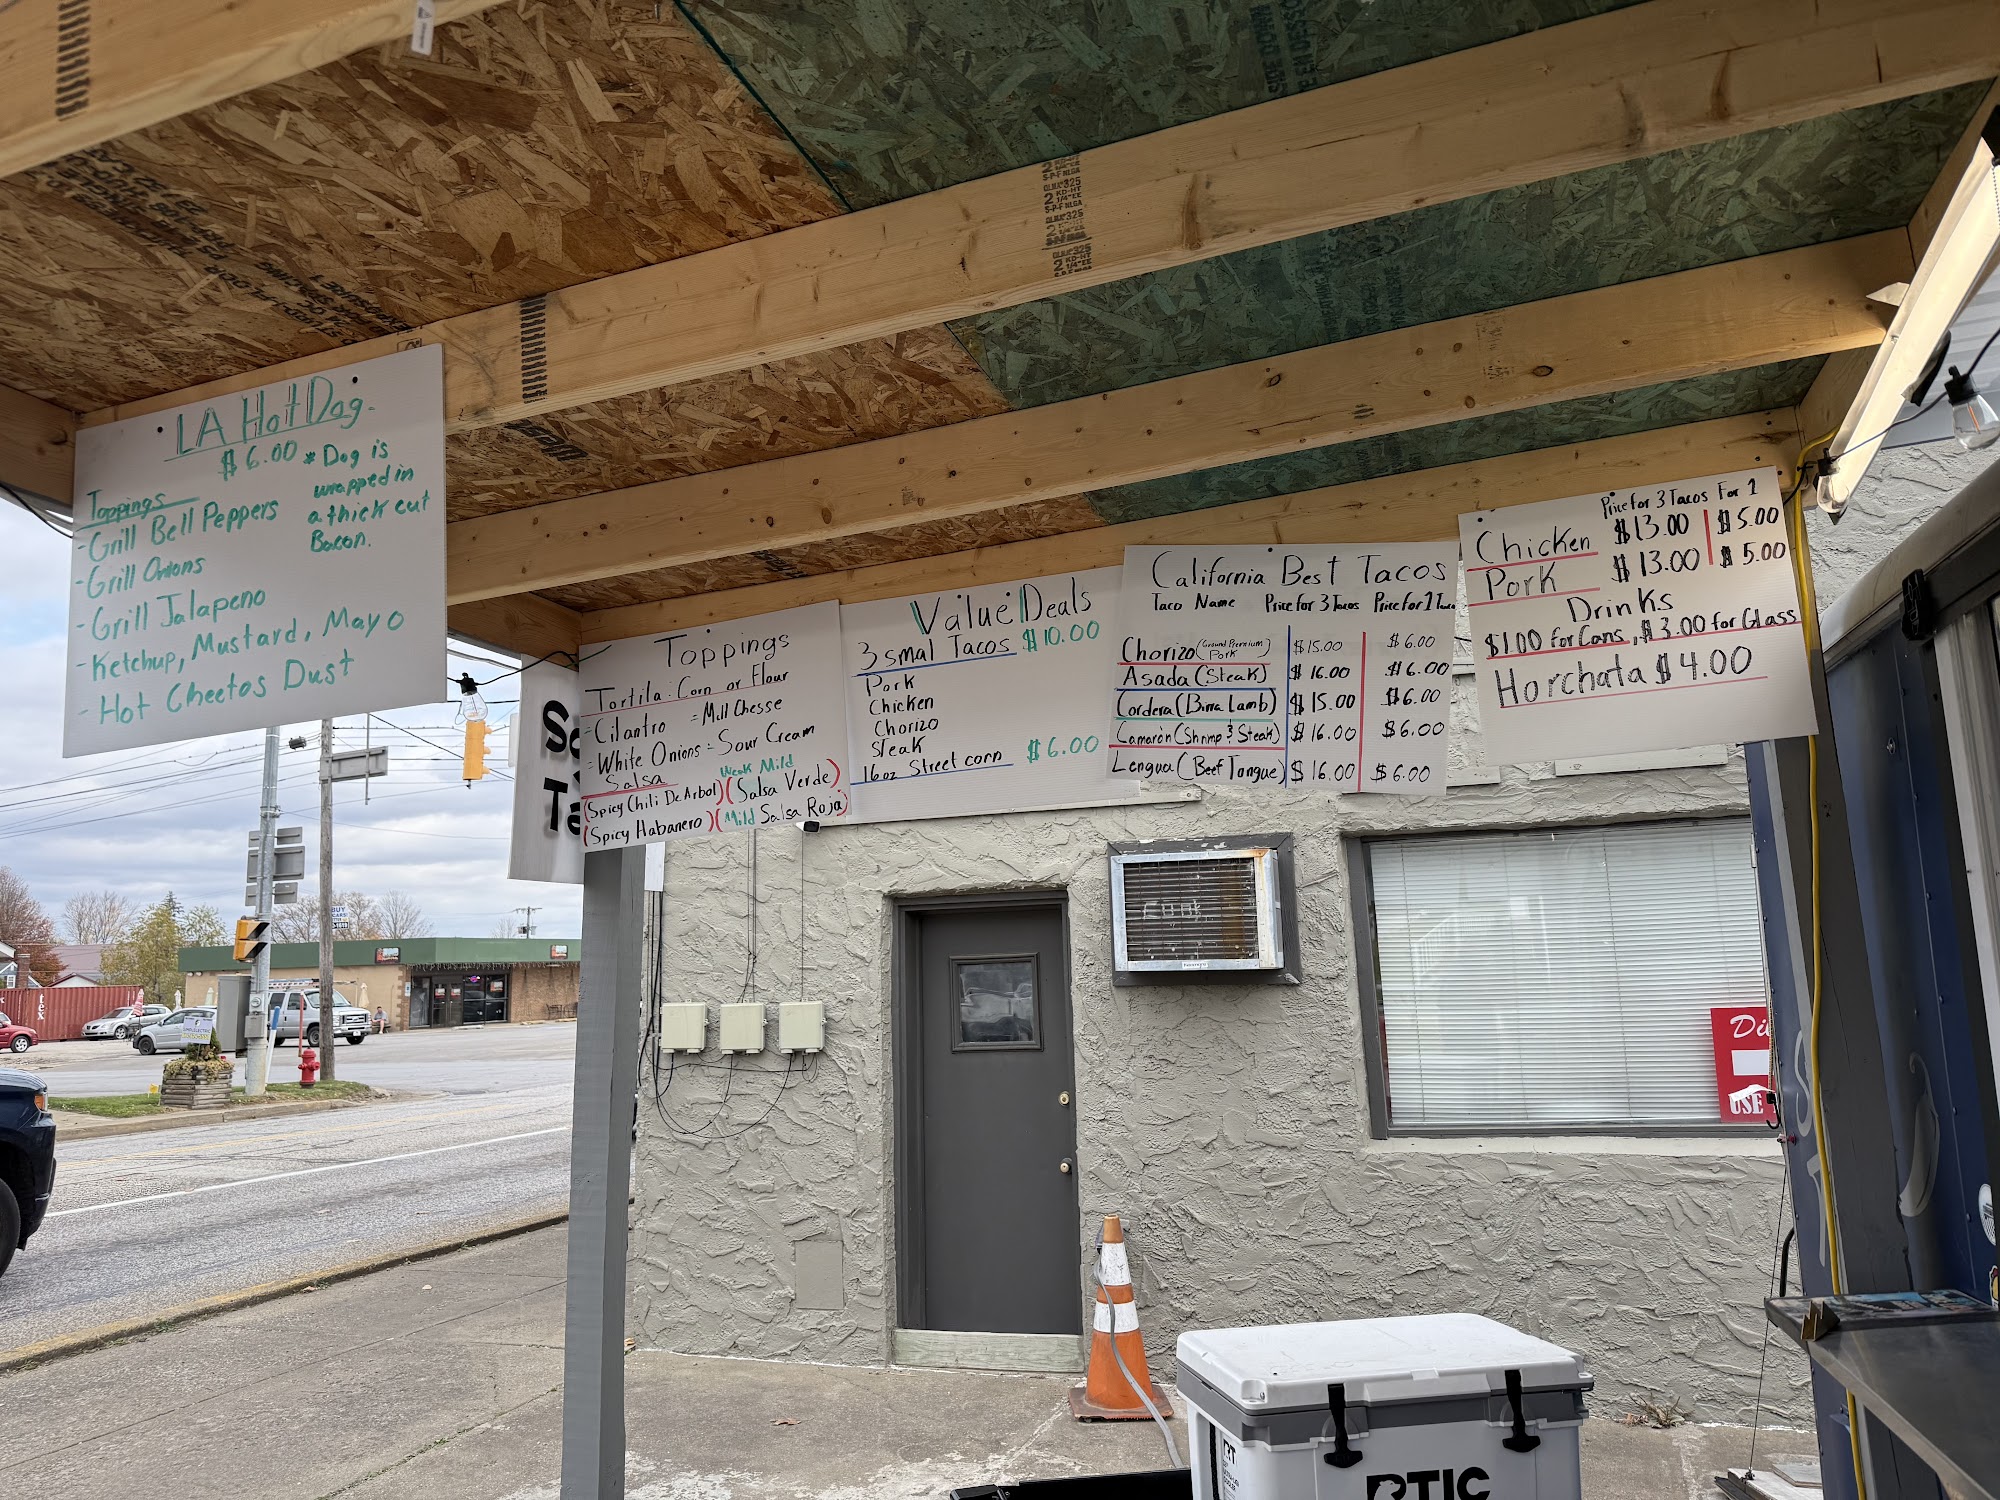 LA Hot Dog.
$6.00
* Dog is
wrapped in
a thick cut
Bacon.
Toppings
- Grill Bell Peppers
- Grill Onions
- Grill Jalapeno
- Ketchup, Mustard, Mayo
- Hot Cheetos Dust
Toppings
Tortila: Corn or Flour
- Cilantro = Mill Chesse
- White Onions - Sour Cream
Salsa
Weak Mild
(Spicy Chili De Arbol) (Salsa Verde)
(Spicy Habanero) (Mild Salsa Roja)
Value Deals
3 smal Tacos $10.00
Pork
Chicken
Chorizo
Steak
16 oz Street corn $6.00
California Best Tacos
Taco Name Price for 3 Tacos Price for 1 Taco
Chorizo (Ground Premium Pork) $15.00 $6.00
Asada (Steak) $16.00 $6.00
Cordera (Birra Lamb) $15.00 $6.00
Camarón (Shrimp & Steak) $16.00 $6.00
Lengua (Beef Tongue) $16.00 $6.00
Price for 3 Tacos For 1
Chicken $13.00 $5.00
Pork $13.00 $5.00
Drinks
$1.00 for Cans, $3.00 for Glass
Horchata $4.00
2 KD-HT
S-P-F NLGA
BUY
USE
RTIC